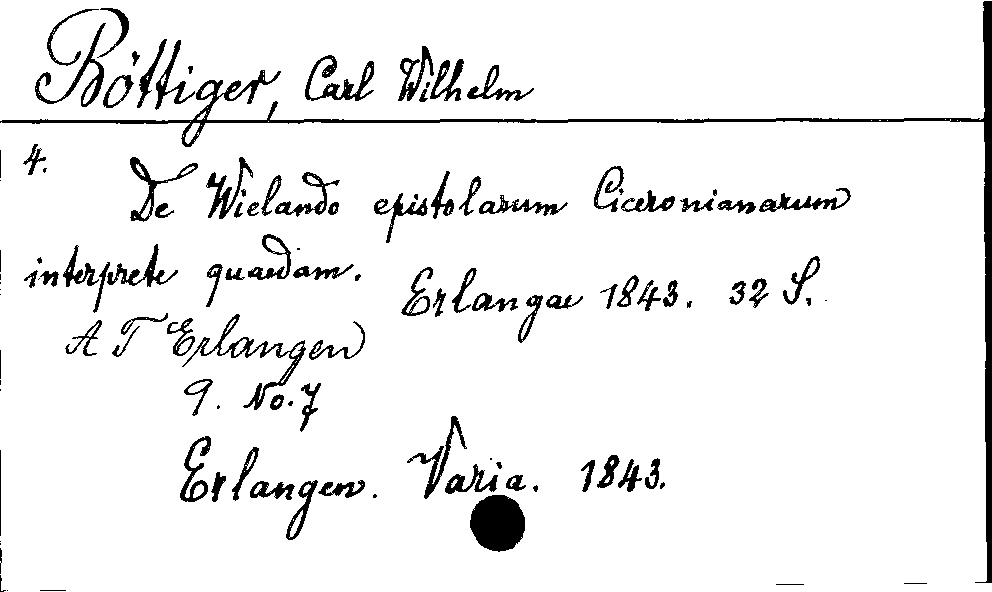 Böttiger, Carl Wilhelm
4.
De Wielando epistolarum Ciceronianarum
interprete quaedam.
Erlangae 1843. 32 S.
A T Erlangen
9. No. 7
Erlangen. Varia. 1843.